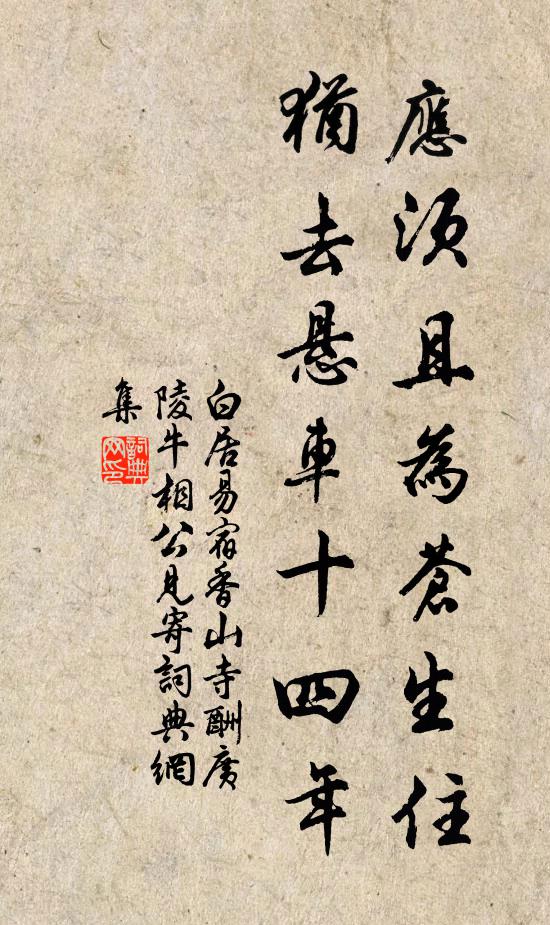 應須且為蒼生住
猶去懸車十四年
白居易宿香山寺酬廣
陵牛相公見寄詞典網
集
詞典
网印